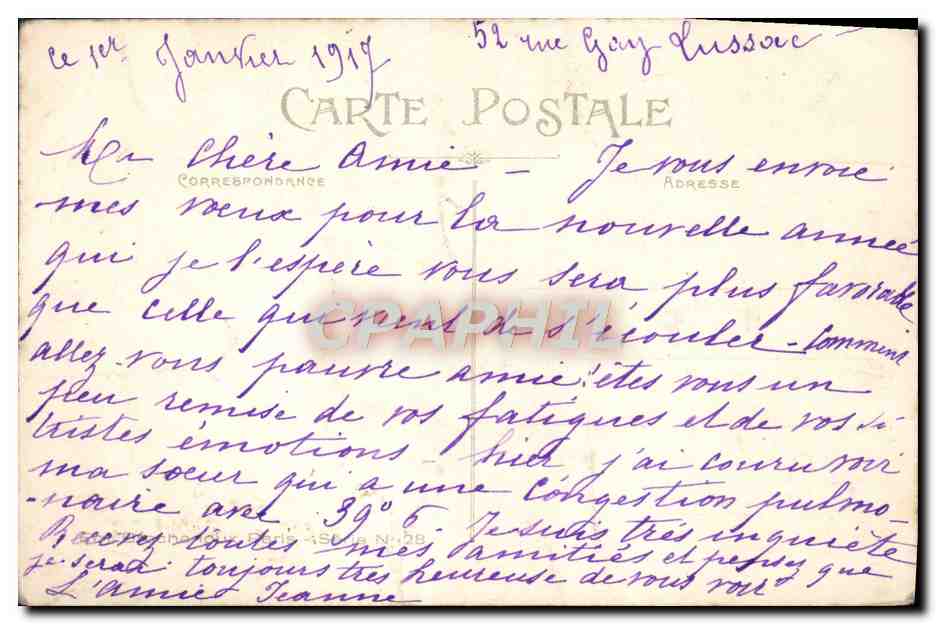 ce 1er Janvier 1917 52 rue Gay Lussac
CARTE POSTALE
Ma chère Amie - Je vous envoie
CORRESPONDANCE ADRESSE
mes vœux pour la nouvelle année
qui je l'espère vous sera plus favorable
que celle qui vient de s'écouler - Comment
CPAPHIL
allez vous pauvre amie! êtes vous un
peu remise de vos fatigues et de vos si
tristes émotions - hier j'ai couru voir
ma sœur qui a une congestion pulmo
-naire avec 39° 6. Je suis très inquiète
Paris - Série N° 28
Recevez toutes mes amitiés et pensez que
je serai toujours très heureuse de vous voir
L'Amie Jeanne